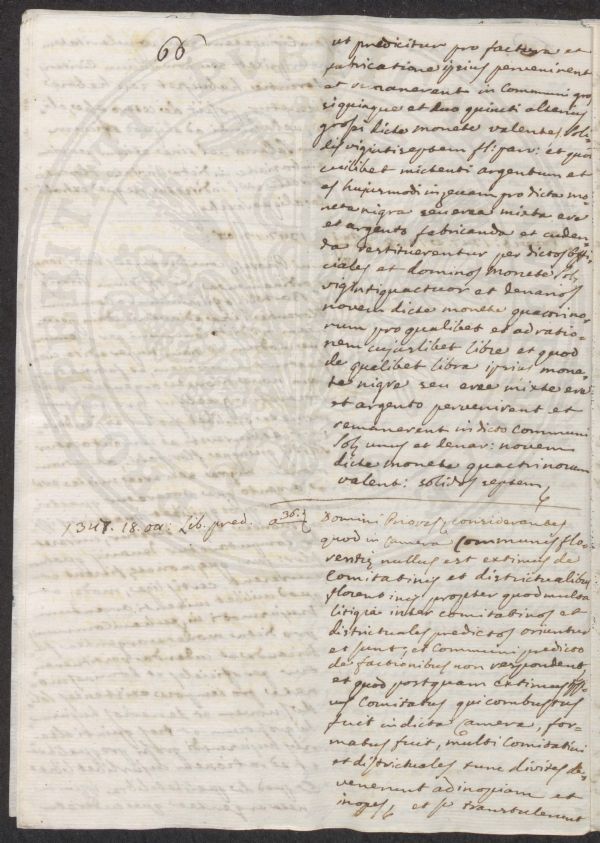 66
ut predicitur pro factura et
fabricatione ipsius pervenirent
et remanerent in Communi gros
si quinque et duo quinti alterius
grossi dicte monete valentes Soli
dos vigintiseptem fl: parv: et quod
cuilibet mictenti argentum et
es hujusmodi in zecam pro dicta mo=
neta nigra seu erea mixta ere
et argento fabricanda et cuden
da restituerentur per dictos Offi
ciales et dominos Monete Sol:
vigintiquactuor et denarios
novem dicte monete quactrino=
rum pro qualibet et ad ratio=
nem cujuslibet libre et quod
de qualibet libra ipsius mone=
te nigre seu eree mixte ere
et argento pervenirent et
remanerent in dicto Communi
Sol: unus et denar: novem
dicte monete quactrinorum
valent: solidos septem
1347. 18. oa: Lib. pred. a 36.
Domini Priores considerantes
quod in Camera Communis flo
rentie nullus est extimus de
Comitatinis et districtualibus
florentinis propter quod multa
litigia inter comitatinos et
districtuales predictos oriuntur
et sunt, et Communi predicto
de factionibus non respondent
et quod postquam extimus
Comitatus qui combustus
fuit in dicta Camera, for=
matus fuit, multi Comitatini
et districtuales tunc divites de=
venerunt ad inopiam et
inopes et se transtulerunt